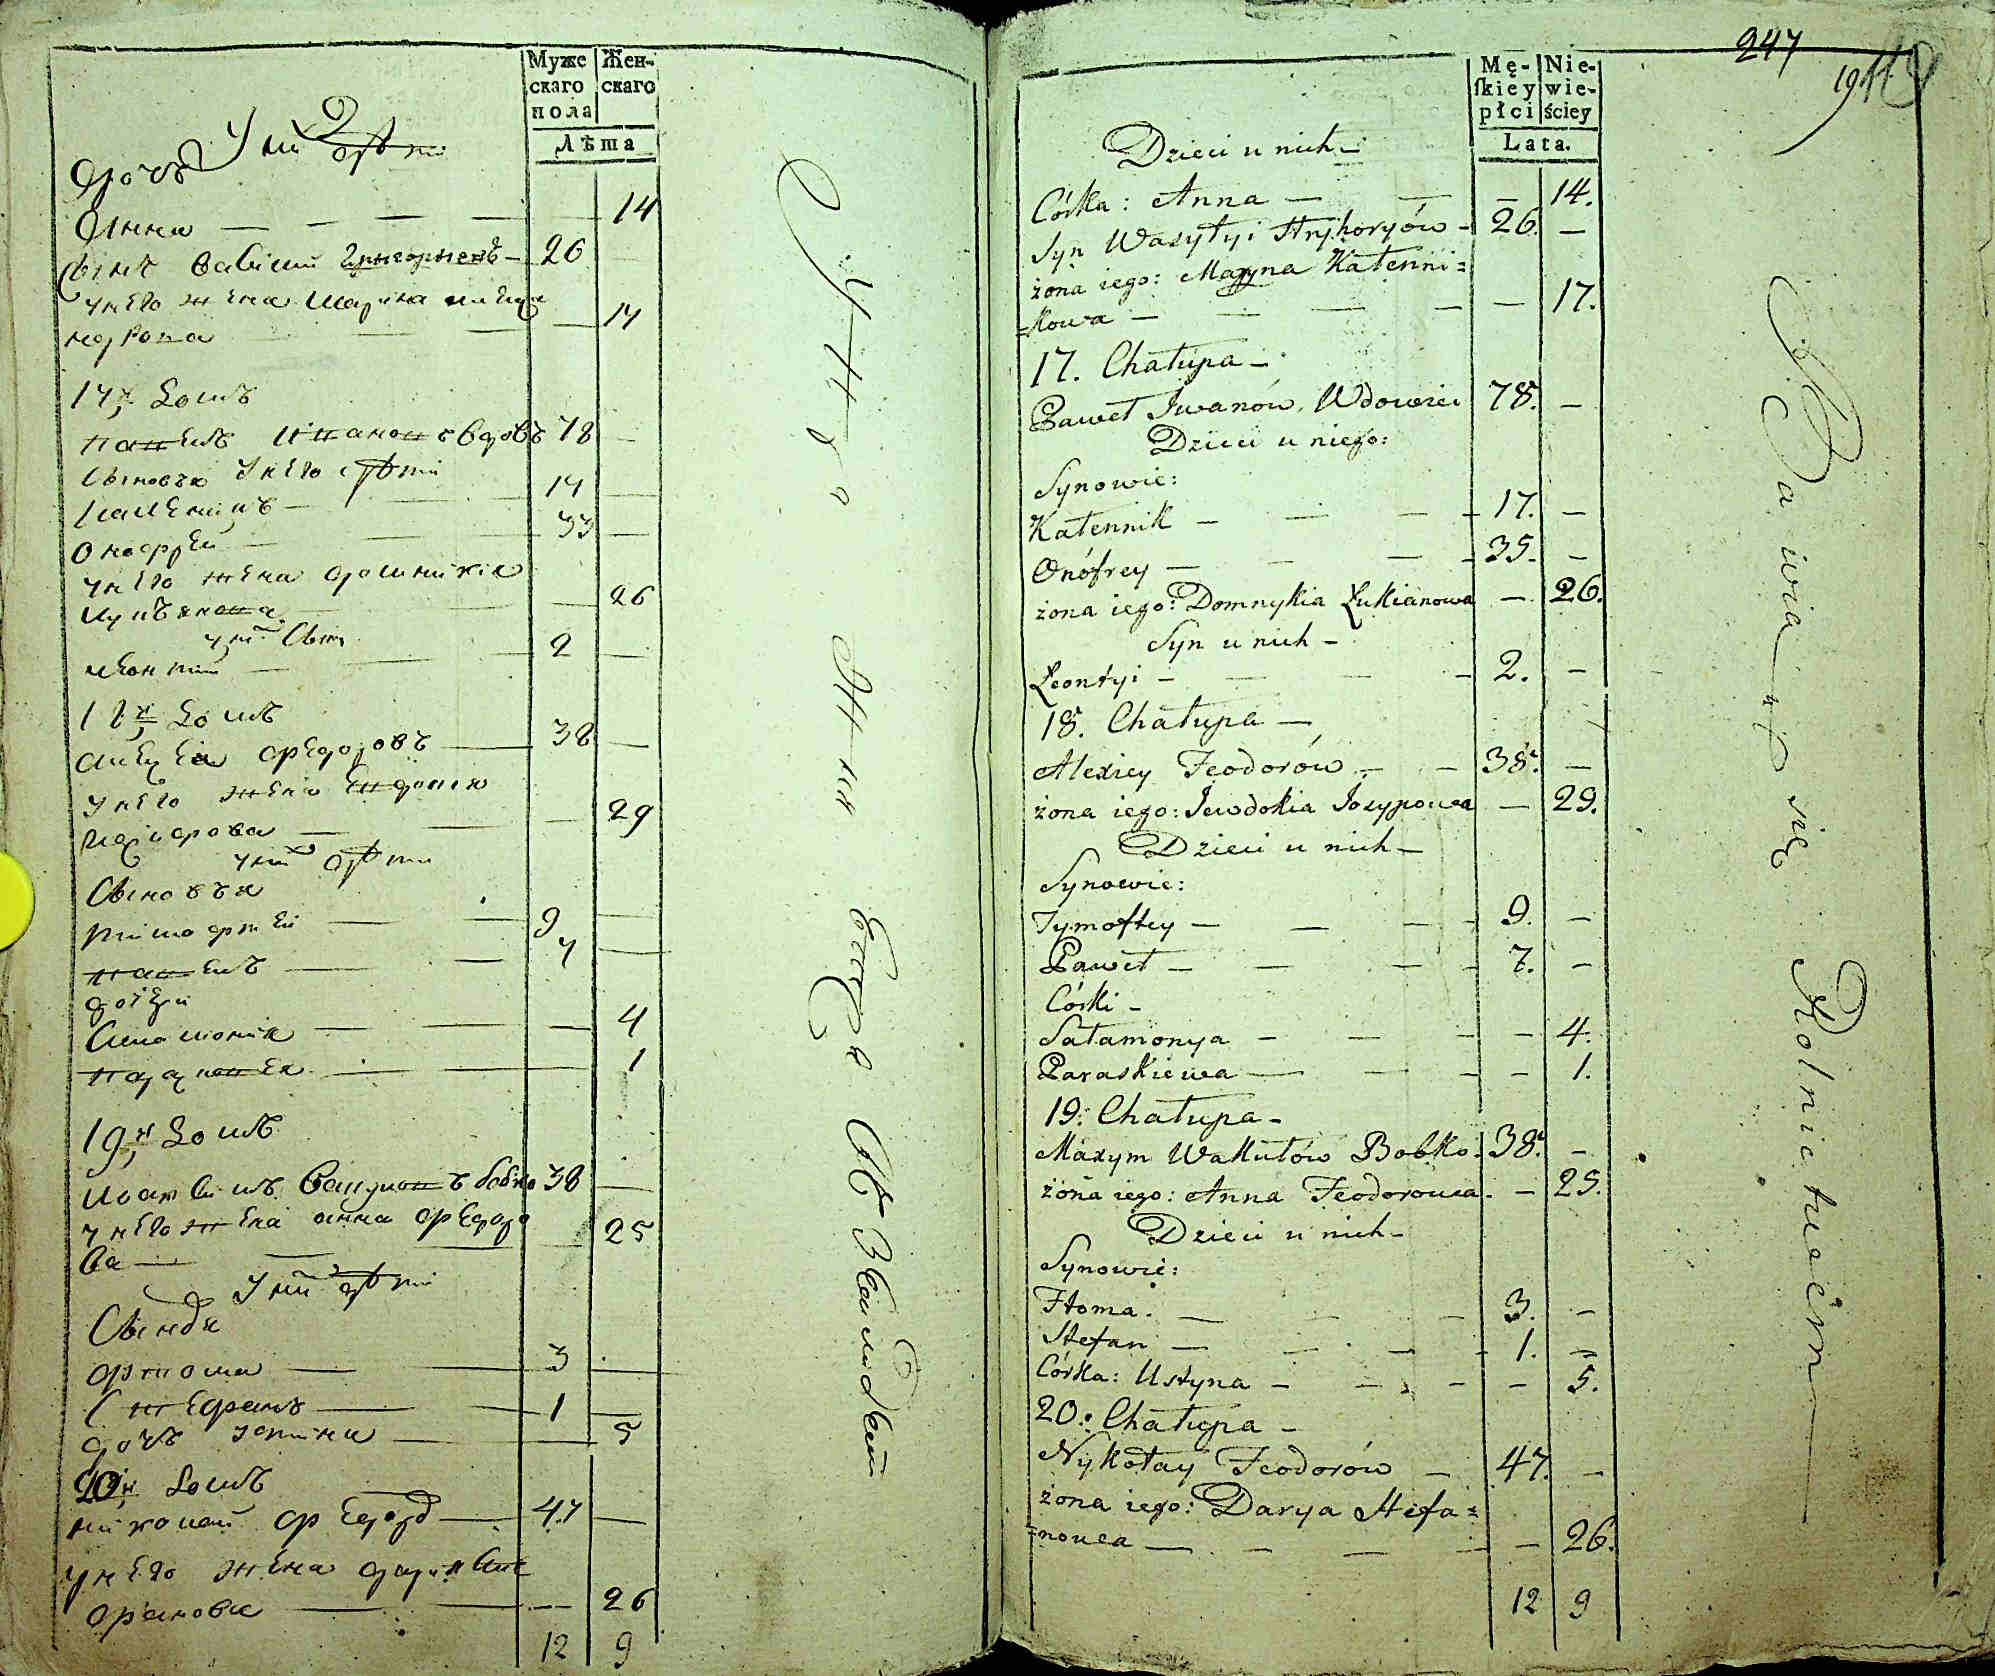 Муже
скаго
пола
Жен-
скаго
Лѣта
У них дѣти
дочь
Анна — — — — 14
Сынъ Василий Григорьевъ — 26 —
у него жена Марина
— — — 17
17й домъ
Павелъ Ивановъ вдовъ 78 —
Сыновья у него дѣти
— 17 —
Онофрей — — 35 —
у него жена Домникия
Лукьянова — — 26
у них Сынъ
Леонтий — — 2 —
18й домъ
Алексей Федоровъ — 38 —
у него жена Евдокия
— — — 29
у них дѣти
Сыновья
Тимофтей — — 9 —
Павелъ — — 7 —
дочери
— — — 4
— — — 1
19й домъ
Максимъ Вакуловъ бобко 38 —
у него жена анна Федоро
ва — — — 25
У них дѣти
Сыновья
Фтома — 3 —
Стефанъ — 1 —
дочь Устина — — 5
20й домъ
Николай Федоров — 47 —
у него жена дария Сте
фанова — — — 26
12 9
247
191
Mę-
skiey
płci
Nie-
wie-
ściey
Lata.
Dzieci u nich —
Córka: Anna — — — 14.
Syn Wasyłyi Hryhoryów — 26. —
żona iego: Maryna Kałenni=
=kowa — — — — — 17.
17. Chałupa —
Paweł Iwanów, Wdowiec 78. —
Dzieci u niego:
Synowie:
Kałennik — — — — 17. —
Onófrey — — — — 35. —
żona iego: Domnykia Łukianowa — 26.
Syn u nich —
Łeontyi — — — — 2. —
18. Chałupa —
Alexiey Feodorów — — 38. —
żona iego: Jewdokia Jozypowa — 29.
Dzieci u nich —
Synowie:
Tymoftey — — — — 9. —
Paweł — — — — 7. —
Córki —
Sałamonya — — — — 4.
Paraskiewa — — — — 1.
19. Chałupa —
Maxym Wakułów Bobko. 38. —
żona iego: Anna Feodorowa. — 25.
Dzieci u nich —
Synowie:
Ftoma. — — — 3. —
Stefan — — — — 1. —
Córka: Ustyna — — — — 5.
20. Chałupa —
Nykołay Feodorów — 47. —
żona iego: Darya Stefa=
=nowa — — — — — 26.
12 9
Bawią się Rolnictwem